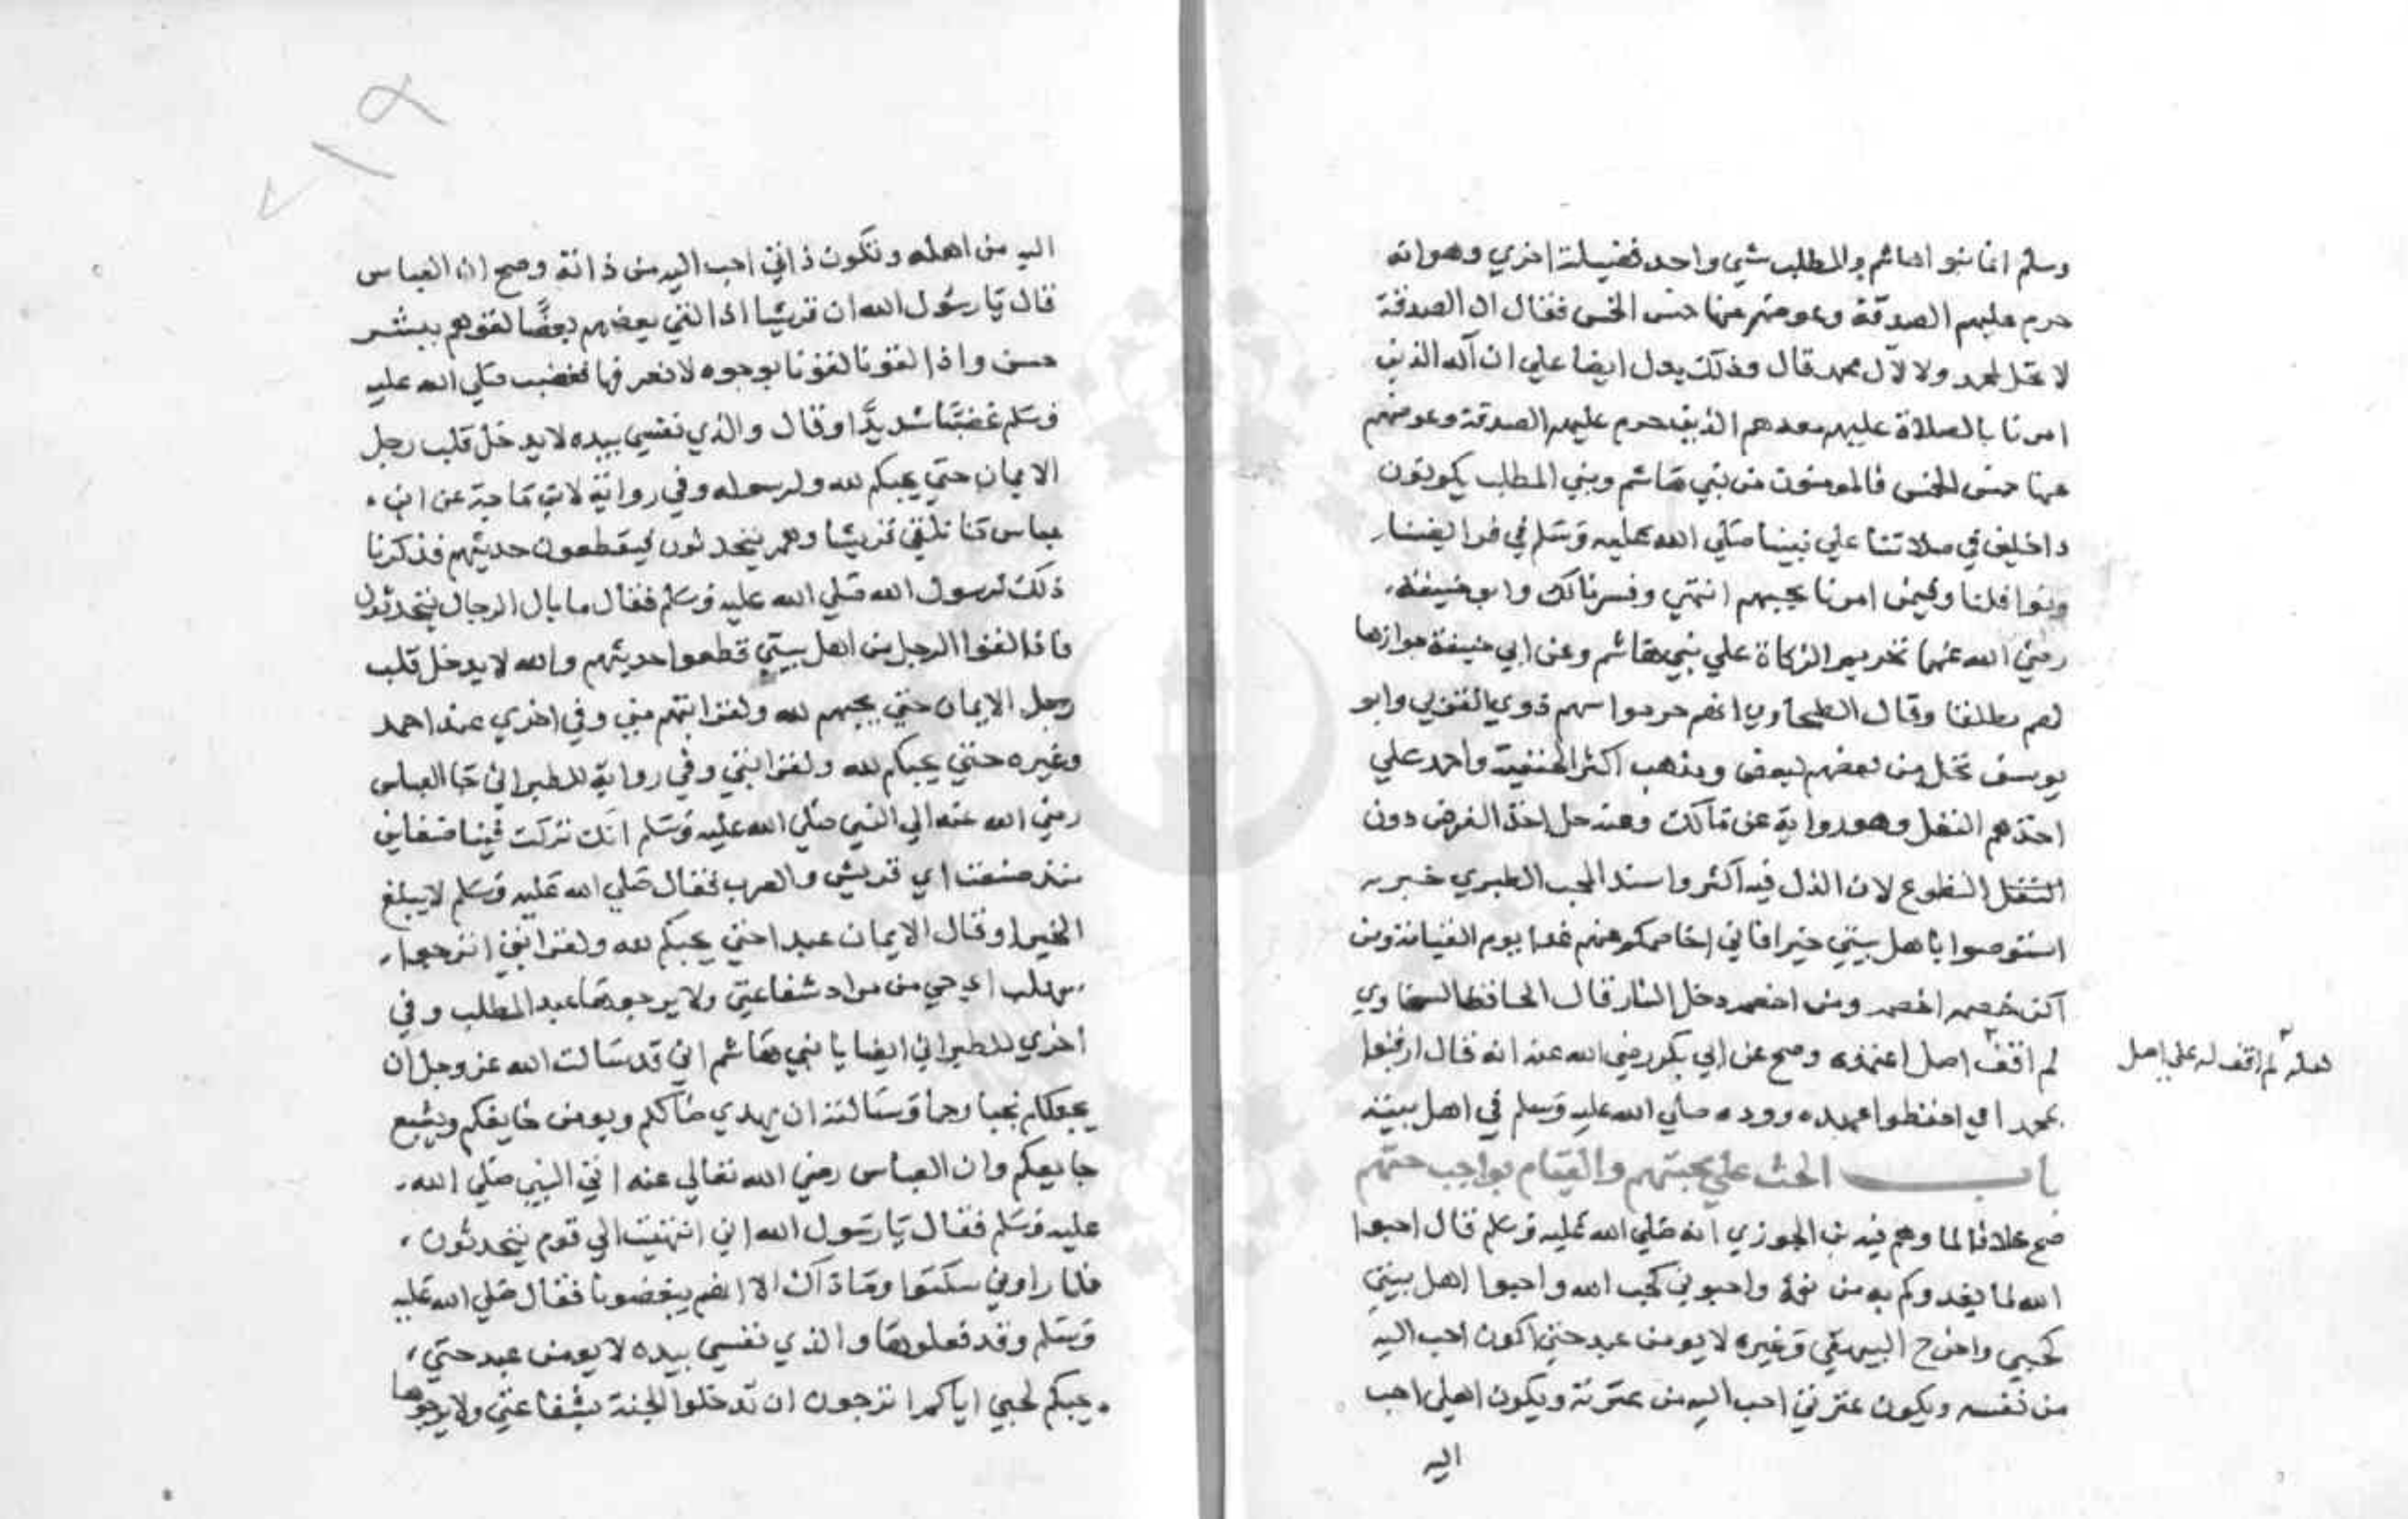 وسلم انما بنوا هاشم والمطلب شي واحد فضيلة اخري وهو انه
حرم عليهم الصدقة وعوضهم عنها خمس الخمس فقال ان الصدقة
لا تحل لمحمد ولا لآل محمد قال وذلك يدل ايضا علي ان آله الذين
امرنا بالصلاة عليهم معه هم الذين حرم عليهم الصدقة وعوضهم
عنها خمس الخمس فالمومنون من بني هاشم وبني المطلب يكونون
داخلين في صلاتنا علي نبينا صلي الله عليه وسلم في فرايضنا
ونوافلنا وفيمن امرنا بحبهم انتهي وفسر مالك وابو حنيفة
رضي الله عنهما تحريم الزكاة علي بني هاشم وعن ابي حنيفة جوازها
لهم مطلقا وقال الطحاوي ان حرموا سهم ذوي القربي وابو
يوسف تحل من بعضهم لبعض ومذهب اكثر الحنفية واحمد علي
اخذهم النفل وهو رواية عن مالك وعنه حل اخذ الفرض دون
التنفل التطوع لان الذل فيه اكثر واسند المحب الطبري خبر
استوصوا باهل بيتي خيرا فاني اخاصمكم عنهم غدا يوم القيامة ومن
اكن خصمه اخصمه ومن اخصمه دخل النار قال الحافظ السخاوي
لم اقف اصل اعتمده وصح عن ابي بكر رضي الله عنه انه قال ارقبوا
لعله لم اقف له علي اصل
محمدا اي احفظوا عهده ووده صلي الله عليه وسلم في اهل بيته
باب الحث علي محبتهم والقيام بواجب حقهم
صح خلافا لما وهم فيه بن الجوزي انه صلي الله عليه وسلم قال احبوا
الله لما يغدوكم به من نعمه واحبوني لحب الله واحبوا اهل بيتي
لحبي واخرج البيهقي وغيره لا يومن عبد حتي اكون احب اليه
من نفسه ويكون عترتي احب اليه من عترته ويكون اهلي احب
اليه
اليه من اهله وتكون ذاتي احب اليه من ذاته وصح ان العباس
قال يا رسول الله ان قريشا اذا لقي بعضهم بعضا لقوهم ببشر
حسن واذا لقونا لقونا بوجوه لا نعرفها فغضب صلي الله عليه
وسلم غضبا شديدا وقال والذي نفسي بيده لا يدخل قلب رجل
الايمان حتي يحبكم لله ولرسوله وفي رواية لابن ماجة عن ابن
عباس كنا نلقي قريشا وهم يتحدثون فيقطعون حديثهم فذكرنا
ذلك لرسول الله صلي الله عليه وسلم فقال ما بال الرجال يتحدثون
فاذا لقوا الرجل من اهل بيتي قطعوا حديثهم والله لا يدخل قلب
رجل الايمان حتي يحبهم لله ولقرابتهم مني وفي اخري عند احمد
وغيره حتي يحبكم لله ولقرابتي وفي رواية للطبراني جا العباس
رضي الله عنه الي النبي صلي الله عليه وسلم انك تركت فينا ضغاين
منذ صنعت اي قريش والعرب فقال صلي الله عليه وسلم لا يبلغ
الخير او قال الايمان عبد احتي يحبكم لله ولقرابتي اترجوا
سهلب اي حي من مراد شفاعتي ولا يرجوها عبد المطلب وفي
اخري للطبراني ايضا يا بني هاشم اني قد سالت الله عز وجل ان
يجعلكم نجبا رحما وسالته ان يهدي ضالكم ويومن خايفكم ويشبع
جايعكم وان العباس رضي الله تعالي عنه اتي النبي صلي الله
عليه وسلم فقال يا رسول الله اني انتهيت الي قوم يتحدثون
فلما راوني سكتوا وما ذاك الا انهم يبغضونا فقال صلي الله عليه
وسلم وقد فعلوها والذي نفسي بيده لا يومن عبد حتي
يحبكم لحبي اياكم اترجون ان تدخلوا الجنة بشفاعتي ولا يرجوها